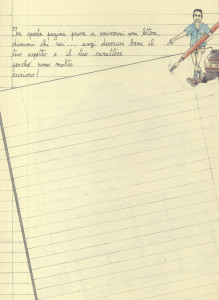 In questa pagina prova a scrivermi una lettera,
dimmi chi sei... anzi descrivi bene il
tuo aspetto e il tuo carattere
perché sono molto
curioso!